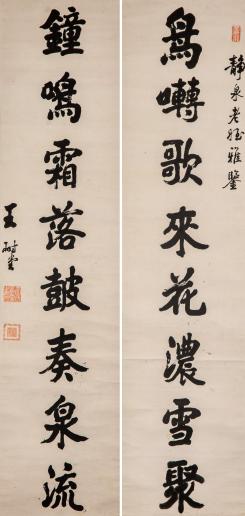 静泉老姪雅鑒
鳥囀歌來花濃雪聚
鐘鳴霜落皷奏泉流
王